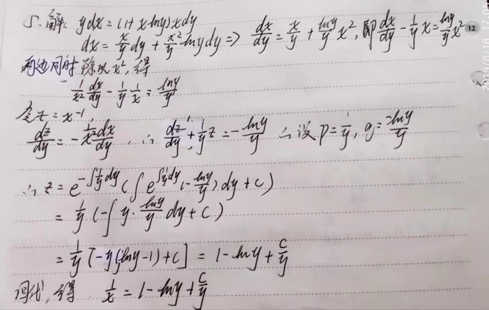 5. 解: ydx = (1+xlny)xdy
dx = x/y dy + x²/y lny dy ⇒ dx/dy = x/y + lny/y x², 即 dx/dy - 1/y x = lny/y x²
两边同时除以x², 得
1/x² dx/dy - 1/y 1/x = lny/y
令z = x⁻¹
dz/dy = -1/x² dx/dy, ∴ dz/dy + 1/y z = -lny/y ∴ 设 P = 1/y, g = -lny/y
∴ z = e^(-∫1/y dy) (∫ e^(∫1/y dy) (-lny/y) dy + c)
= 1/y (-∫ y · lny/y dy + c)
= 1/y [-y(lny-1)+c] = 1-lny + c/y
回代, 得 1/x = 1-lny + c/y
12